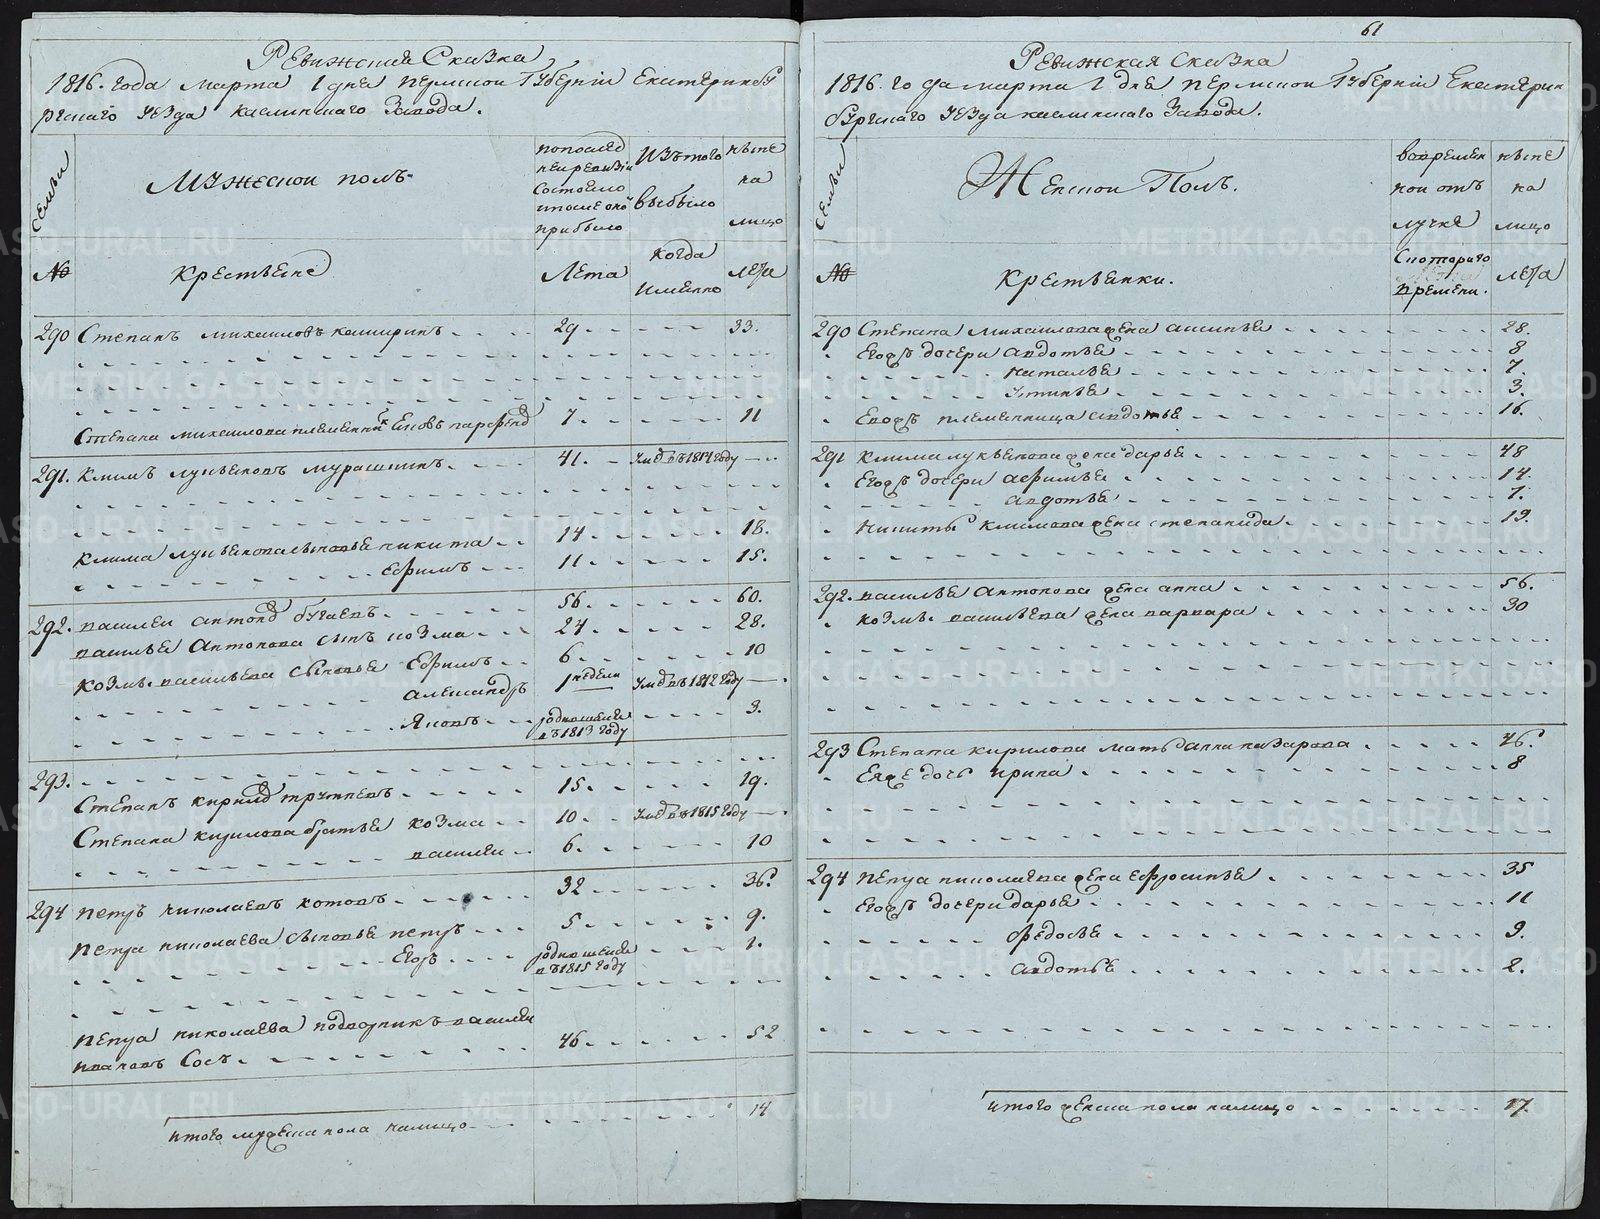 Ревижская Сказка
1816. года марта 1 дня пермской Губерніи Екатеринбу
ргскаго уезда каслинскаго Завода.
Семьи
Мужеской полъ
по послед
ней ревизіи
состояло
и после оной
прибыло
Изъ того
выбыло
ныне
на
лицо
№
Крестьяне
Лета
когда
именно
лета
290 Степанъ михаиловъ каширинъ 29 33.
Степана михаилова племянникъ 7 11
291. Климъ лукьяновъ мурашкинъ. 41. умъ въ 1814 году
Клима лукьянова сыновья никита 14 18.
Ефимъ 11 15.
292. василеи антоновъ бугаевъ 56. 60.
василья Антонова сынъ козма 24 28.
козмы васильева сыновья Ефимъ 6. 10
александръ 1 недели умъ въ 1812 году
яковъ родившейся въ 1813 году 3.
293.
Степанъ кириловъ 15. 19.
Степана кирилова братья козма 10. умъ въ 1815 году
василеи 6. 10
294 петръ николаевъ котовъ 32 36.
петра николаева сыновья петръ 5. 9.
Егоръ родившейся въ 1815 году 1.
петра николаева подворникъ василеи
ивановъ Сосъ. 46. 52
итого мужеска пола налицо 14
61
Ревижская Сказка
1816. года марта 1 дня пермской Губерніи Екатерин
бургскаго уезда каслинскаго Завода.
Семьи
Женской Полъ.
во времен
ной отъ
лучке
ныне
на
лицо
№
Крестьянки.
Скотораго
времени.
лета
290 Степана михаилова жена аксинья 28.
Егожъ дочери авдотья 8
наталья 7.
устинья 3.
Егожъ племянница авдотья 16.
291 клима лукьянова жена дарья 48
Егожъ дочери афимья 14.
авдотья 7.
никиты климова жена степанида 19.
292. василья антонова жена анна 56.
козмы васильева жена варвара 30
293 Степана кирилова мать анна назарова 46.
Ея же дочь ирина 8
294 петра николаева жена ефросинья 35
Егожъ дочери дарья 11
федосья 9.
авдотья 2.
итого женска пола налицо 17.
METRIKI.GASO-URAL.RU